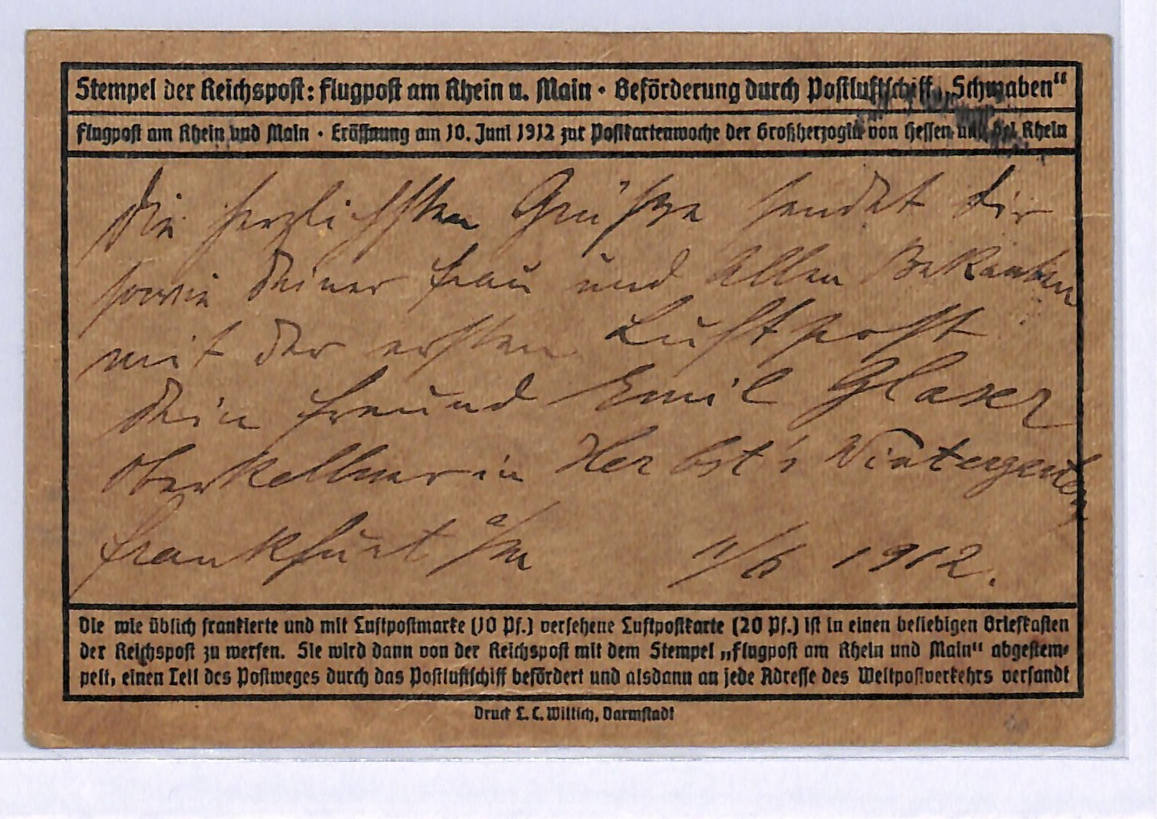 Stempel der Reichspost: Flugpost am Rhein u. Main · Beförderung durch Postluftschiff „Schwaben“
Flugpost am Rhein und Main · Eröffnung am 10. Juni 1912 zur Postkartenwoche der Großherzogin von Hessen und bei Rhein
Die herzlichsten Grüße sendet Dir
sowie Deiner Frau und Allen Bekannten
mit der ersten Luftpost
Dein Freund Emil Glaser
Oberkellner in Herbst's Wintergarten
Frankfurt a/M 11/6 1912.
Die wie üblich frankierte und mit Luftpostmarke (10 Pf.) versehene Luftpostkarte (20 Pf.) ist in einen beliebigen Briefkasten
der Reichspost zu werfen. Sie wird dann von der Reichspost mit dem Stempel „Flugpost am Rhein und Main“ abgestem-
pelt, einen Teil des Postweges durch das Postluftschiff befördert und alsdann an jede Adresse des Weltpostverkehrs versandt
Druck L. C. Wittich, Darmstadt